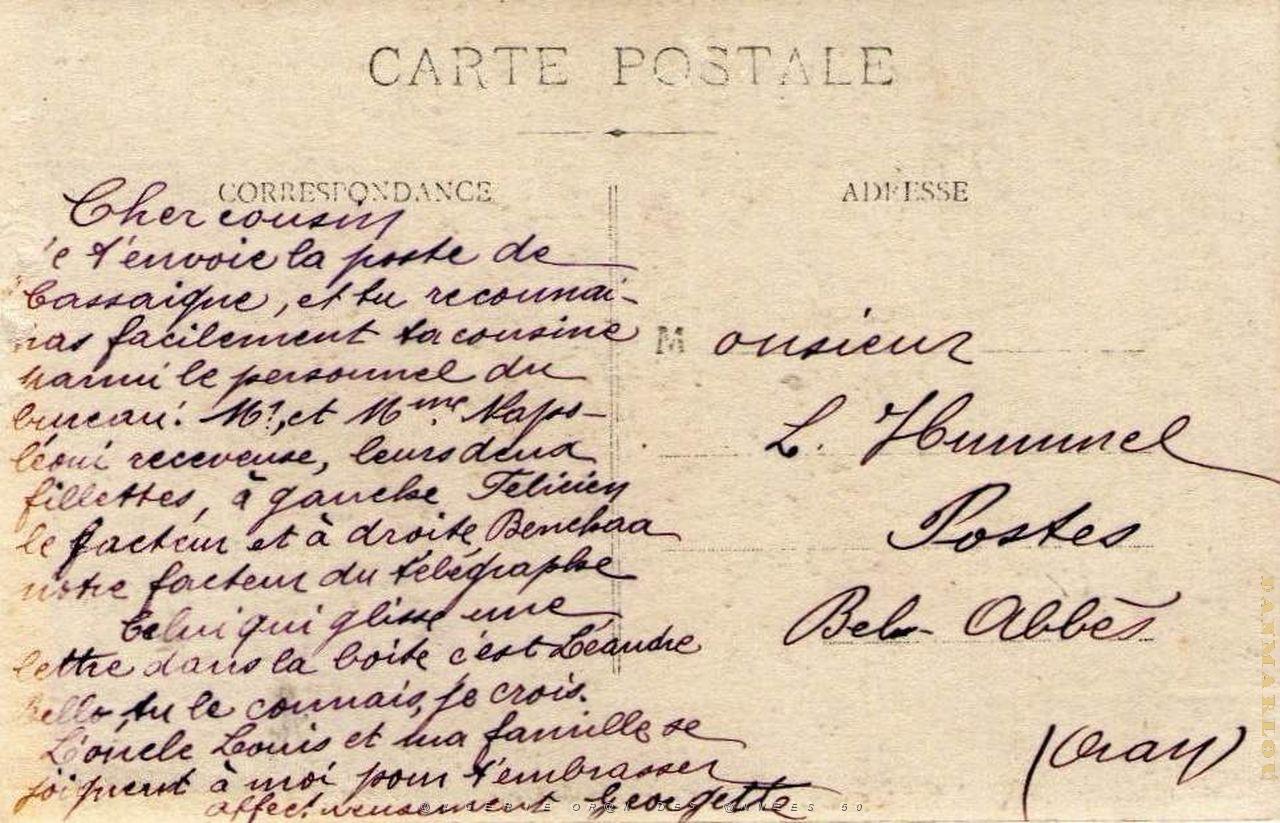 CARTE POSTALE
CORRESPONDANCE
Cher cousin
t'envoie la poste de
Cassaigne, et tu reconnai-
ras facilement ta cousine
parmi le personnel du
bureau. Mr, et Mme Napo-
léoni receveuse, leurs deux
fillettes, à gauche Félicien
le facteur et à droite Benchaa
notre facteur du télégraphe
Celui qui glisse une
lettre dans la boite c'est Léandre
Bello, tu le connais, je crois.
L'oncle Louis et ma famille se
joignent à moi pour t'embrasser
affectueusement Georgette
ADRESSE
Monsieur
L. Hummel
Postes
Bel-Abbès
(Oran)
PANMARLOU